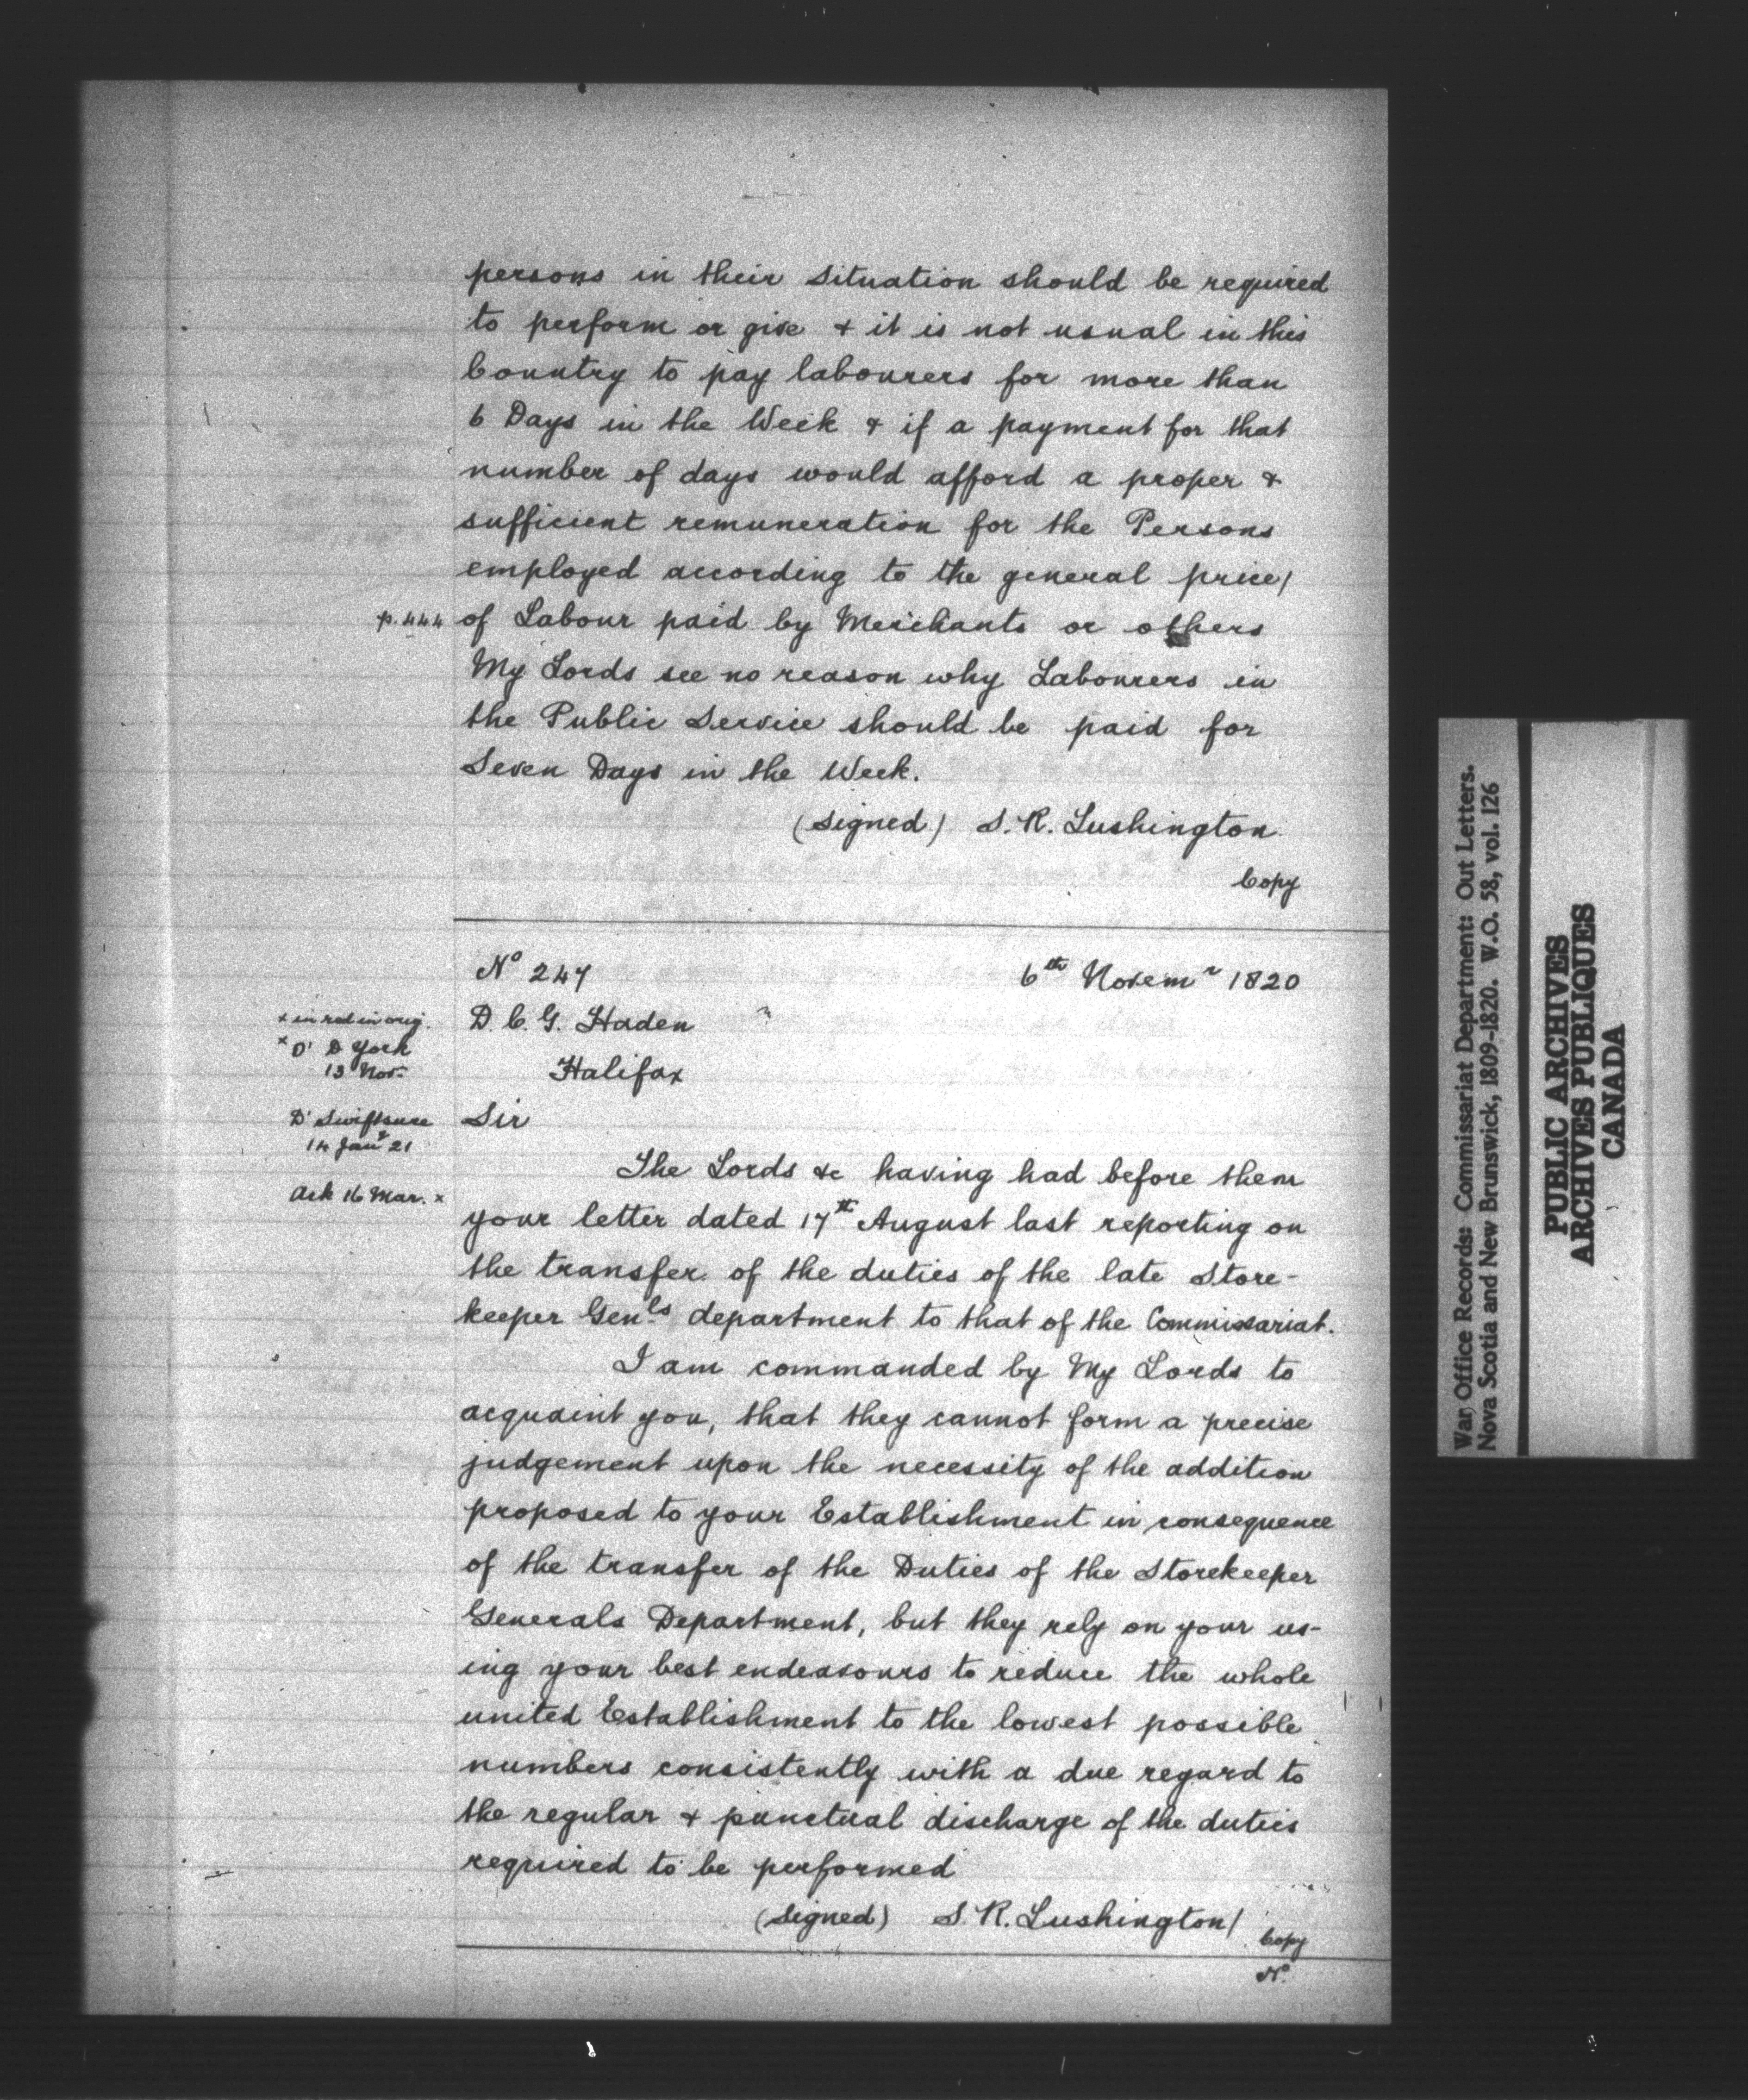 persons in their situation should be required
to perform or give & it is not usual in this
Country to pay labourers for more than
6 Days in the Week & if a payment for that
number of days would afford a proper &
sufficient remuneration for the Persons
employed according to the general price/
p. 444 of Labour paid by Merchants or others
My Lords see no reason why Labourers in
the Public Service should be paid for
Seven Days in the Week.
(signed) S. R. Lushington
Copy
No 247
6th Novemr 1820
D. C. G. Haden
Halifax
x in red in orig.
x D' D York
13 Nov.
D' Swiftsure
14 Jany 21
Ack 16 Mar. x
Sir
The Lords &c having had before them
your letter dated 17th August last reporting on
the transfer of the duties of the late Store-
keeper Genls department to that of the Commissariat.
I am commanded by My Lords to
acquaint you, that they cannot form a precise
judgement upon the necessity of the addition
proposed to your Establishment in consequence
of the transfer of the Duties of the Storekeeper
Generals Department, but they rely on your us-
ing your best endeavours to reduce the whole
united Establishment to the lowest possible
numbers consistently with a due regard to
the regular & punctual discharge of the duties
required to be performed
(signed) S. R. Lushington/
Copy
No
War Office Records: Commissariat Department: Out Letters.
Nova Scotia and New Brunswick, 1809-1820. W.O. 58, vol. 126
PUBLIC ARCHIVES
ARCHIVES PUBLIQUES
CANADA